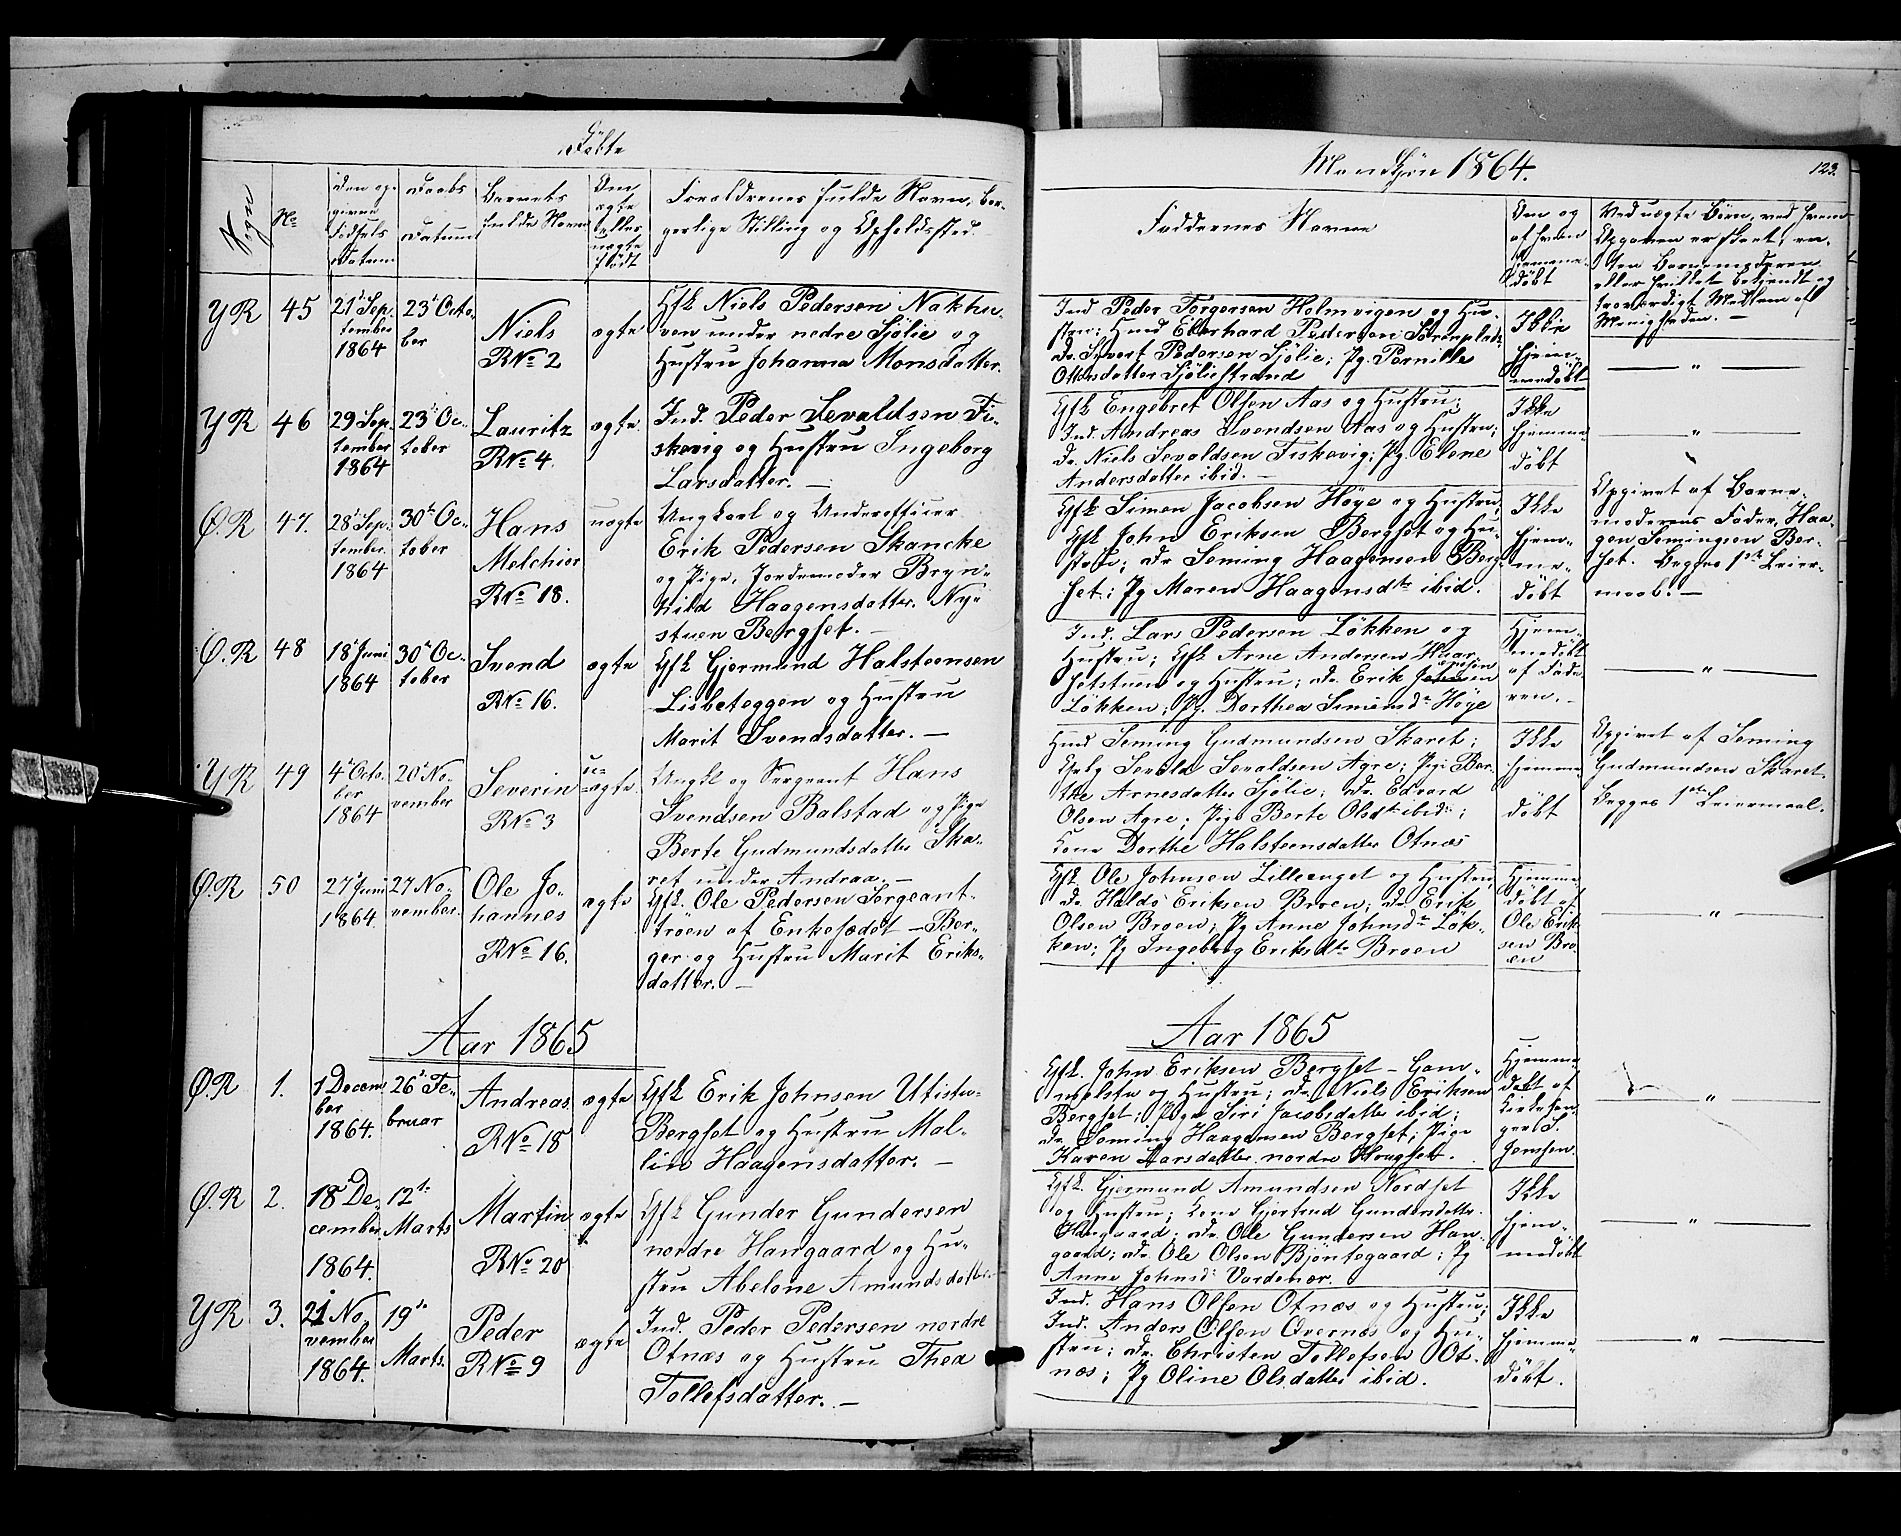 Fødte
Mandkjøn 1864.
123.
Sogn
No
Den op-
givne
Fødsels
Datum
Daabs
Datum
Barnets
fulde Navn
Om
ægte
eller
uægte
født
Forældrenes fulde Navn, bor-
gerlige Stilling og Opholdssted.
Faddernes Navne
Om og
af hvem
hjemme-
døbt
Ved uægte Børn, ved hvem
Opgaven er skeet, en-
ten Barnemoderen
eller hvilket bekjendt og
troværdigt Medlem af
Menigheden. —
YR 45
21de Sep-
tember
1864
23de Octo-
ber
Niels
RNo 2
ægte
Gfk Niels Pedersen Nakhu-
ven under nedre Sjølie og
Hustru Johanna Monsdatter.
Ind Peder Torgersen Holmvigen og Hu-
stru; Huud Eberhard Pedersen Sorenplads
Dr. Sivert Pedersen Sjølie; Pg. Pernille
Ottersdatter Sjøliestrand
Ikke
hjem-
medøbt
— " —
YR 46
29 Sep-
tember
1864
23de Oc-
tober
Lauritz
RNo 4.
ægte
Ind. Peder Sevaldsen Fi-
skevig og Hustru Ingeborg
Larsdatter. —
Gfk Engebret Olsen Aas og Hustru;
Ind. Andreas Svendsen Aas og Hustru;
Dr. Niels Sevaldsen Fiskevig; Pg Elene
Andersdatter ibid. —
Ikke
hjemme-
døbt
— " —
Ø.R 47.
28de Sep-
tember.
1864
30te Oc-
tober
Hans
Melchior
RNo 18.
uægte
Ungkarl og Underofficer
Erik Pedersen Skancke
og Pige, Jordemoder Bryn-
hild Haagensdatter. Nye
stuen Bergset. —
Gfk Simen Jacobsen Høye og Hustru;
Gfk John Eriksen Bergset og Hu-
stru; Dr Seming Haagensen Berg-
set; Pg Maren Haagensdtr ibid.
Ikke
hjem-
me-
døbt
Opgivet af Barne-
moderens Fader, Haa-
gen Semingsen Ber-
set. Begges 1ste Leier-
maal. —
Ø.R 48
18de Juni
1864
30te Oc-
tober
Svend
RNo 16.
ægte
Gfk Gjermund Halsteensen
Lisbeteggen og Hustru
Marit Svendsdatter. —
Ind. Lars Pedersen Løkken og
Hustru; Gfk Arne Andersen Haar-
setstuen og Hustru; Dr. Erik
Løkken; Pg. Dorthea Simensdtr Høye
Hjem-
medøbt
af Fade-
ren. -
— " —
YR 49
4de Octo-
ber
1864
20de No-
vember
Severin
RNo 3
u-
ægte
Ungkl og Sergeant Hans
Svendsen Balstad og Pige
Berte Gudmundsdatter Ska-
ret under Andraa. —
Huud Seming Gudmundsen Skaret;
Sevald Sevaldsen Agre; Pige Ber-
the Arnesdatter Sjølie; Dr. Edvard
Olsen Agre; Pige Berte Olsdtr ibid;
Kone Dorthe Halsteensdatter Otnæs
Ikke
hjemme-
døbt
Opgivet af Seming
Gudmundsen Skaret.
Begges 1ste Leiermaal.
Ø.R 50
27de Juni
1864
27 No-
vember.
Ole Jo-
hannes
RNo 16.
ægte
Gfk. Ole Pedersen Sergeant-
trøen af Enkesædet — Ber-
ger og Hustru Marit Eriks-
datter. —
Gfk. Ole Johnsen Lilleenget og Hustru;
Dr. Haldo Eriksen Broen; Dr Erik
Olsen Broen; Pg Anne Johnsdtr Løk-
ken; Pg Ingeborg Eriksdtr Broen
Hjemme-
døbt af
Ole Erik-
sen Bro-
en
— " —
Aar 1865
Aar 1865
Ø.R 1.
1 Decem-
ber
1864.
26de Fe-
bruar
Andreas
RNo 18
ægte
Gfk Erik Johnsen Utistu-
Bergset og Hustru Mal-
lin Haagensdatter. —
Gfk. John Eriksen Bergset - Gam-
melstu og Hustru; Dr. Niels Eriksen
Bergset; Pige Siri Jacobsdatter ibid;
Dr Seming Haagensen Bergset; Pige
Karen Larsdatter nordre Haugset.
Hjemme-
døbt af
Kirkesan-
ger S.
Jensen
— " —
Ø.R 2.
18 De-
cember
1864.
12te
Marts
Martin
RNo 20
ægte
Gfk Gunder Gundersen
nordre Hangaard og Hu-
stru Abelone Amundsdatter
Gfk. Gjermund Amundsen Nordset
og Hustru; Kone Gjertrud Gundersdatter
Hangaard; Dr. Ole Gundersen Han-
gaard; Dr. Ole Olsen Bjøntegaard; Pg
Anne Johnsdtr Vardenær.
Ikke
hjem-
medøbt
— " —
YR 3.
21 No-
vember
1864.
19de
Marts.
Peder
RNo 9
ægte
Ind. Peder Pedersen nordre
Otnæs og Hustru Thea
Tollefsdatter. —
Ind. Hans Olsen Otnæs og Hustru;
Ind. Anders Olsen Overnæs og Hu-
stru; Dr. Christen Tollefsen Ot-
næs; Pg Oline Olsdatter ibid.
Ikke
hjemme-
døbt.
— " —